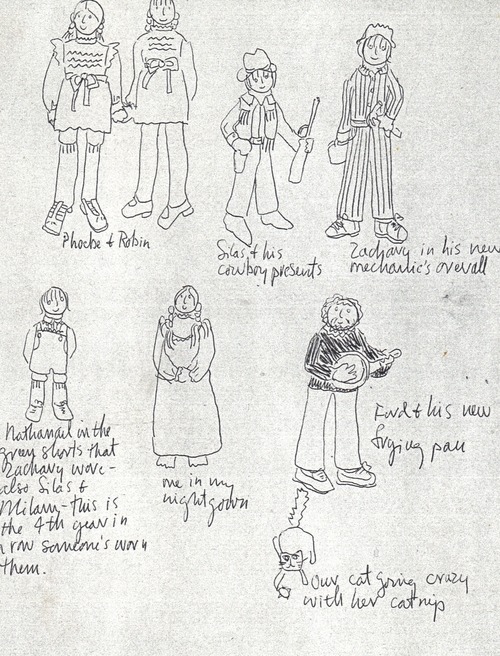 Phoebe & Robin
Silas & his
cowboy presents
Zachary in his new
mechanic's overall
Nathanael in the
gray shorts that
Zachary wore-
also Silas &
Milam-this is
the 4th year in
a row someone's worn
them.
me in my
nightgown
Ford & his new
frying pan
Our cat going crazy
with her catnip